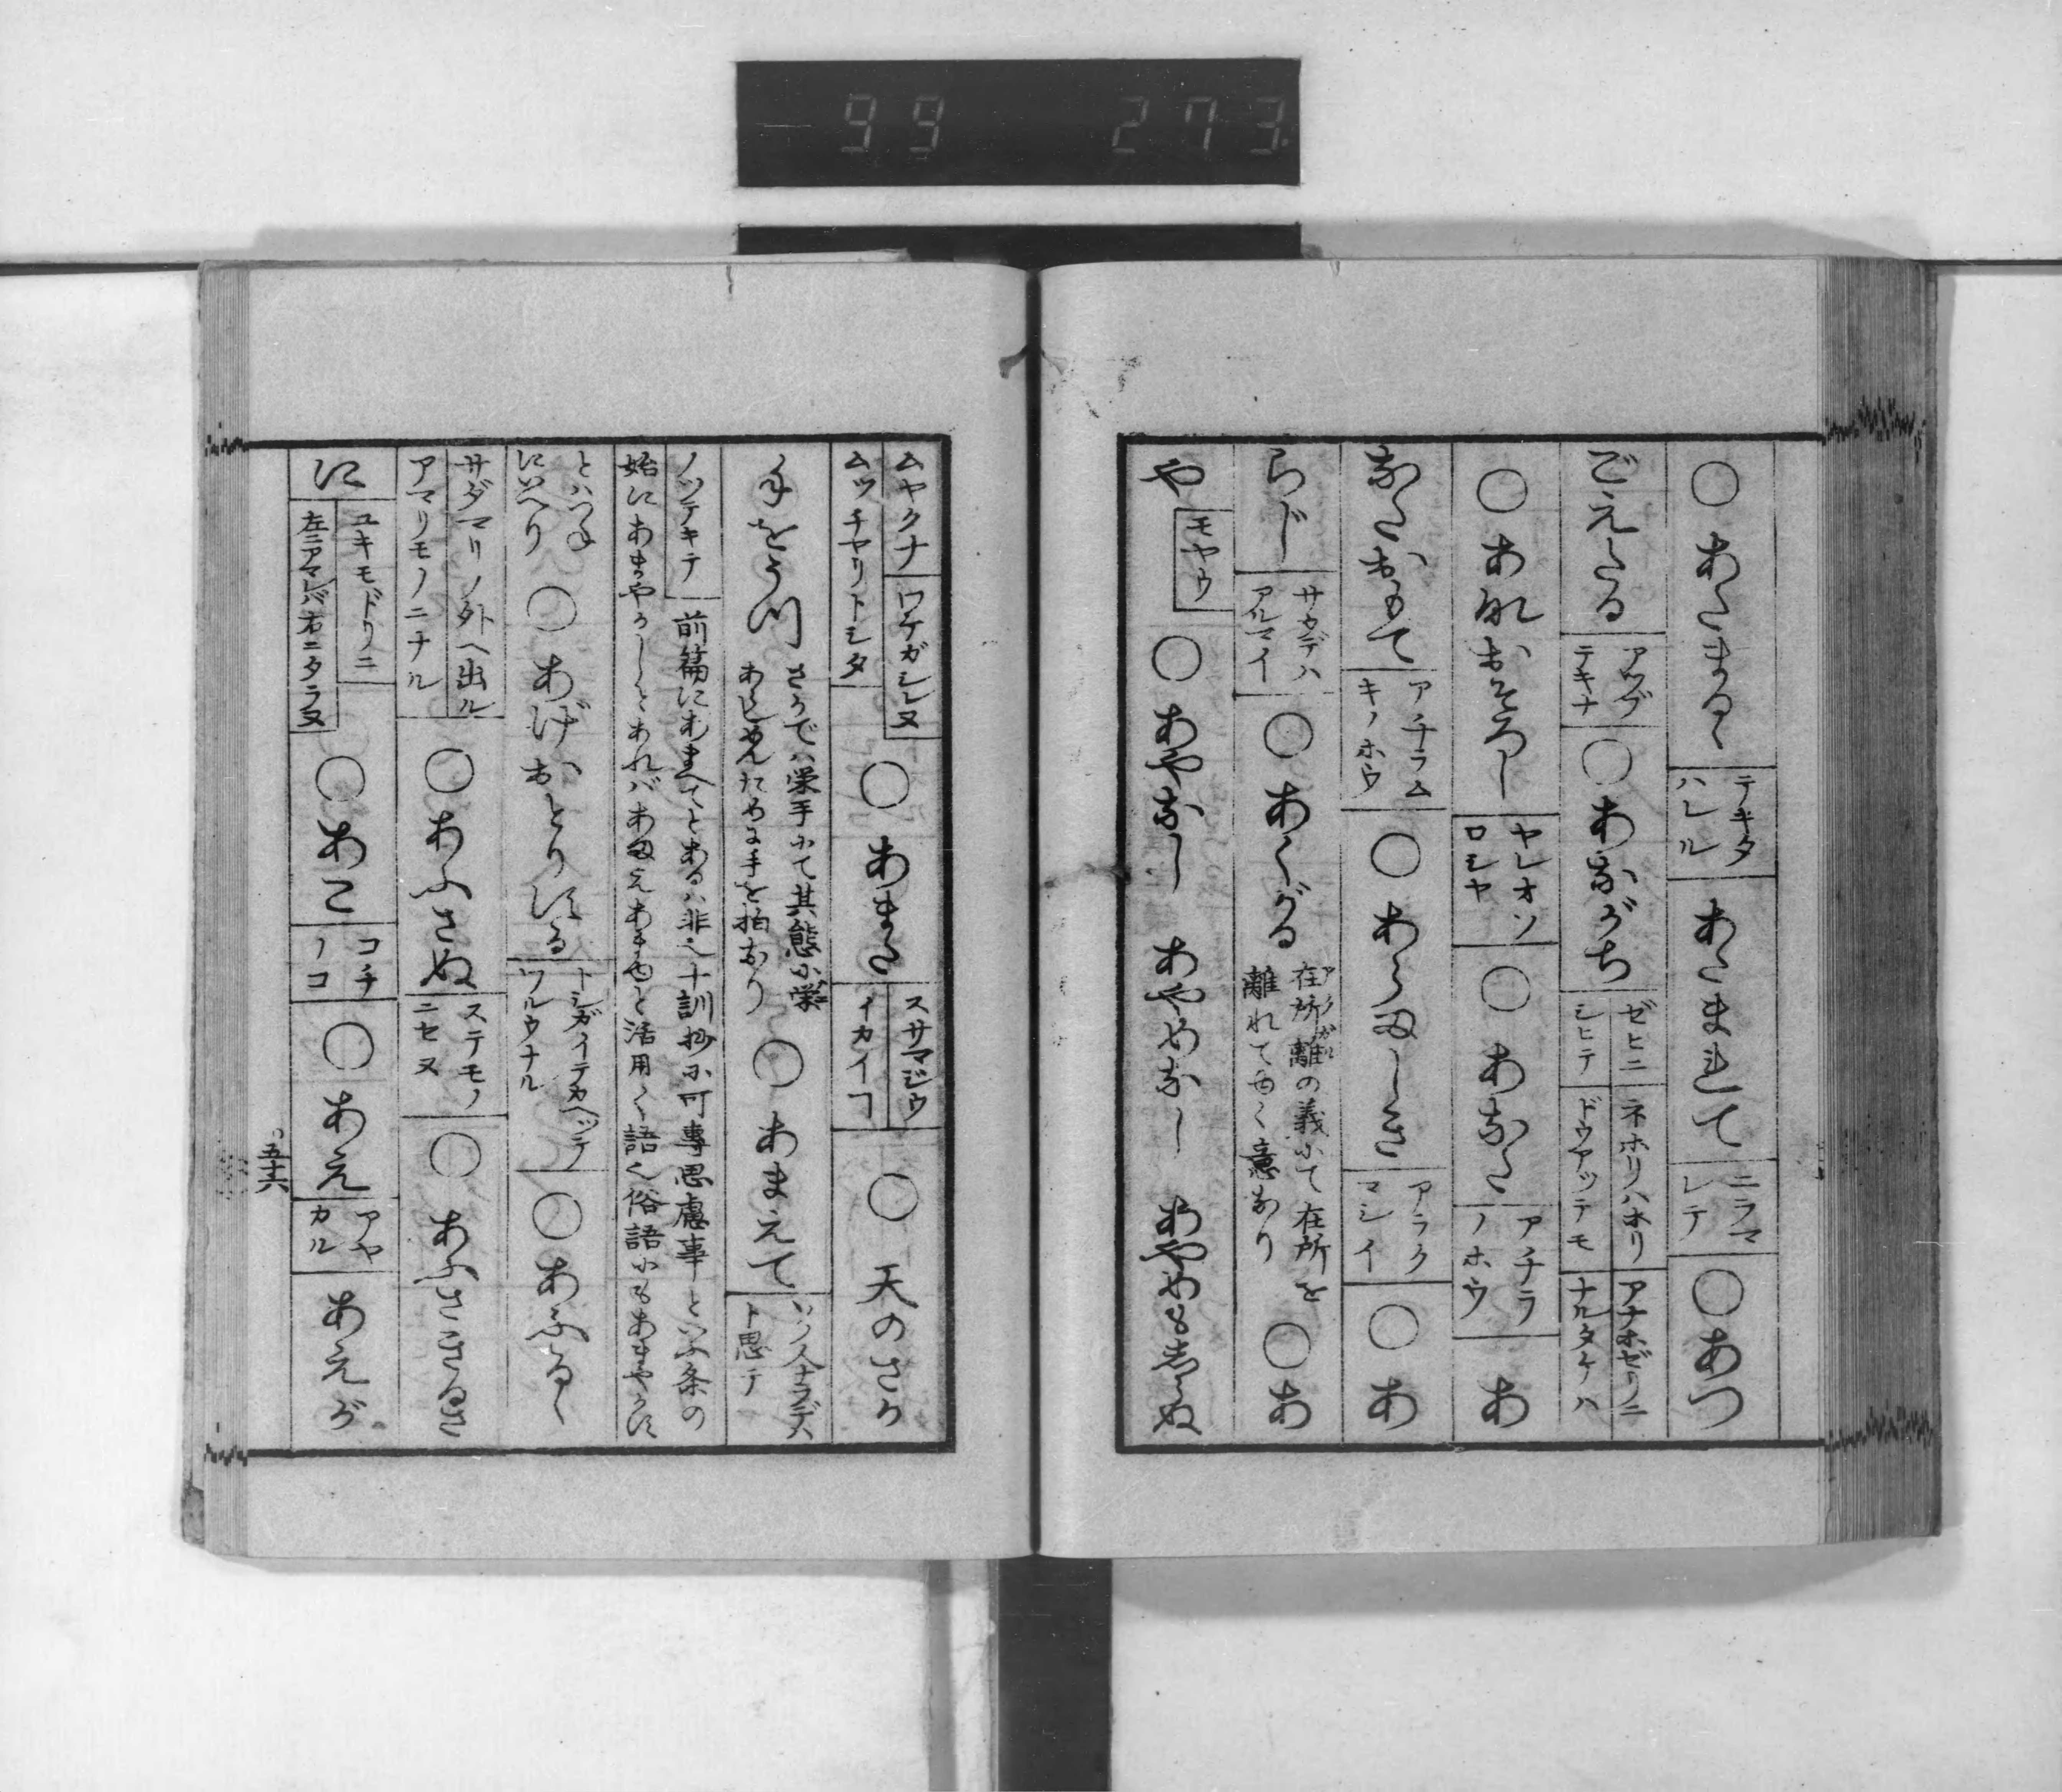 99 273
○あたまる〻 テキタハレル あたまれて ニラマレテ ○あつ
ごえたる アツブテキナ ○あながち ゼヒニ シヒテ ネホリハホリ ドウアツテモ アナホゼリニ ナルタケハ
○あなおそろし ヤレオソロシヤ ○あなた アチラノホウ あ
なたおもて アチラムキノホウ ○あらましき アラクマシイ ○あ
らじ サウデハアルマイ ○あくがる 在所離の義にて在所を離れてゆく意なり ○あ
や モヤウ ○あやなし あやめなし あやめもしらぬ
ムヤクナ ワケガシレヌ
ムツチヤリトシタ ○あまた スサマジウ イカイコ ○天のさか
手をうつ さかでハ栄手にて其態に栄 手を拍なり ○あまえて ト思テ
ノツテキテ 前篇にあまへてとあるハ非也十訓抄に可専思慮事といふ条の
始にあまやかしとあれバ と活用く語也俗語にもあまやかに
とハつね
にいへり ○あげおとりする トシガイテカヘツテ ワルウナル ○あふる〻
サダマリノ外ヘ出ル
アマリモノニナル ○あふさぬ ステモノニセヌ ○あふさきるさ
に ユキモドリニ 左ニアマレバ右ニタラヌ ○あこ コチノコ ○あえ アヤカル あえが
五十六